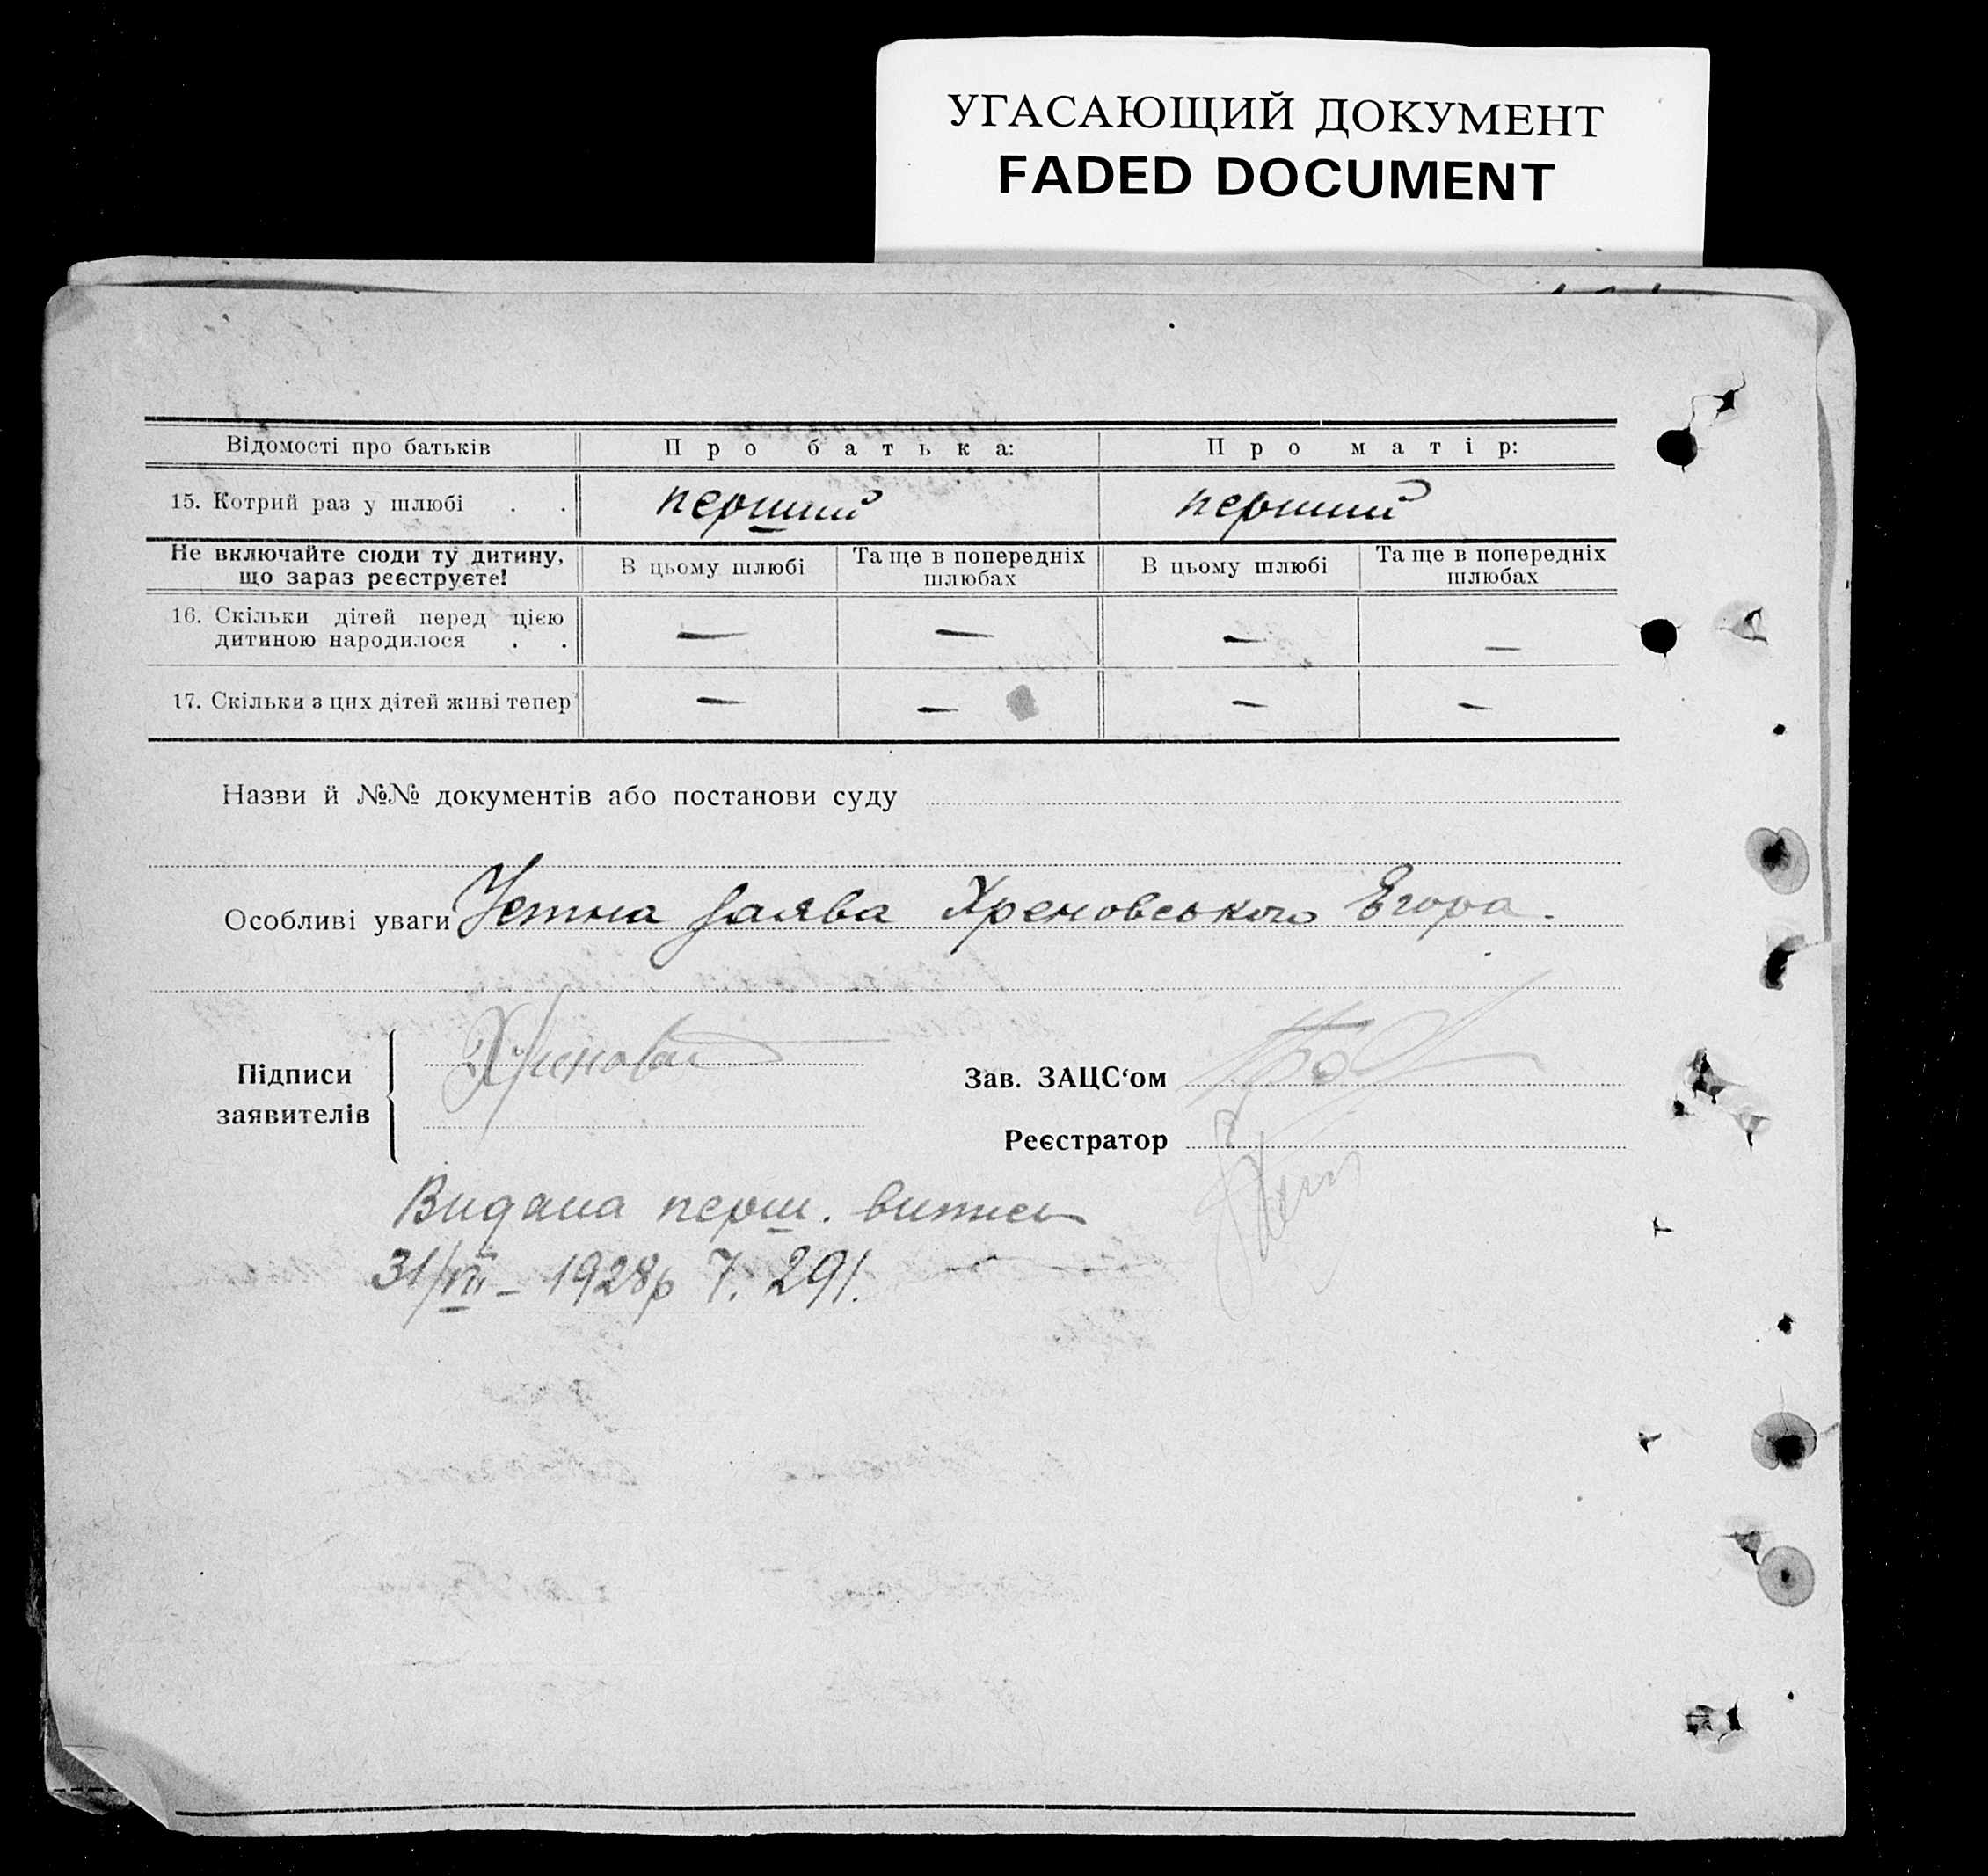 УГАСАЮЩИЙ ДОКУМЕНТ
FADED DOCUMENT
Відомості про батьків Про батька: Про матір:
15. Котрий раз у шлюбі . . перший перший
Не включайте сюди ту дитину, що зараз реєструєте! В цьому шлюбі Та ще в попередніх шлюбах В цьому шлюбі Та ще в попередніх шлюбах
16. Скільки дітей перед цією
дитиною народилося . . — — — —
17. Скільки з цих дітей живі тепер — — — —
Назви й №№ документів або постанови суду
Особливі уваги Устна заява Хреновського Єгора.
Підписи
заявителів
Зав. ЗАЦС‘ом
Реєстратор
Видана перш. витись
31/VII – 1928р 7. 291.